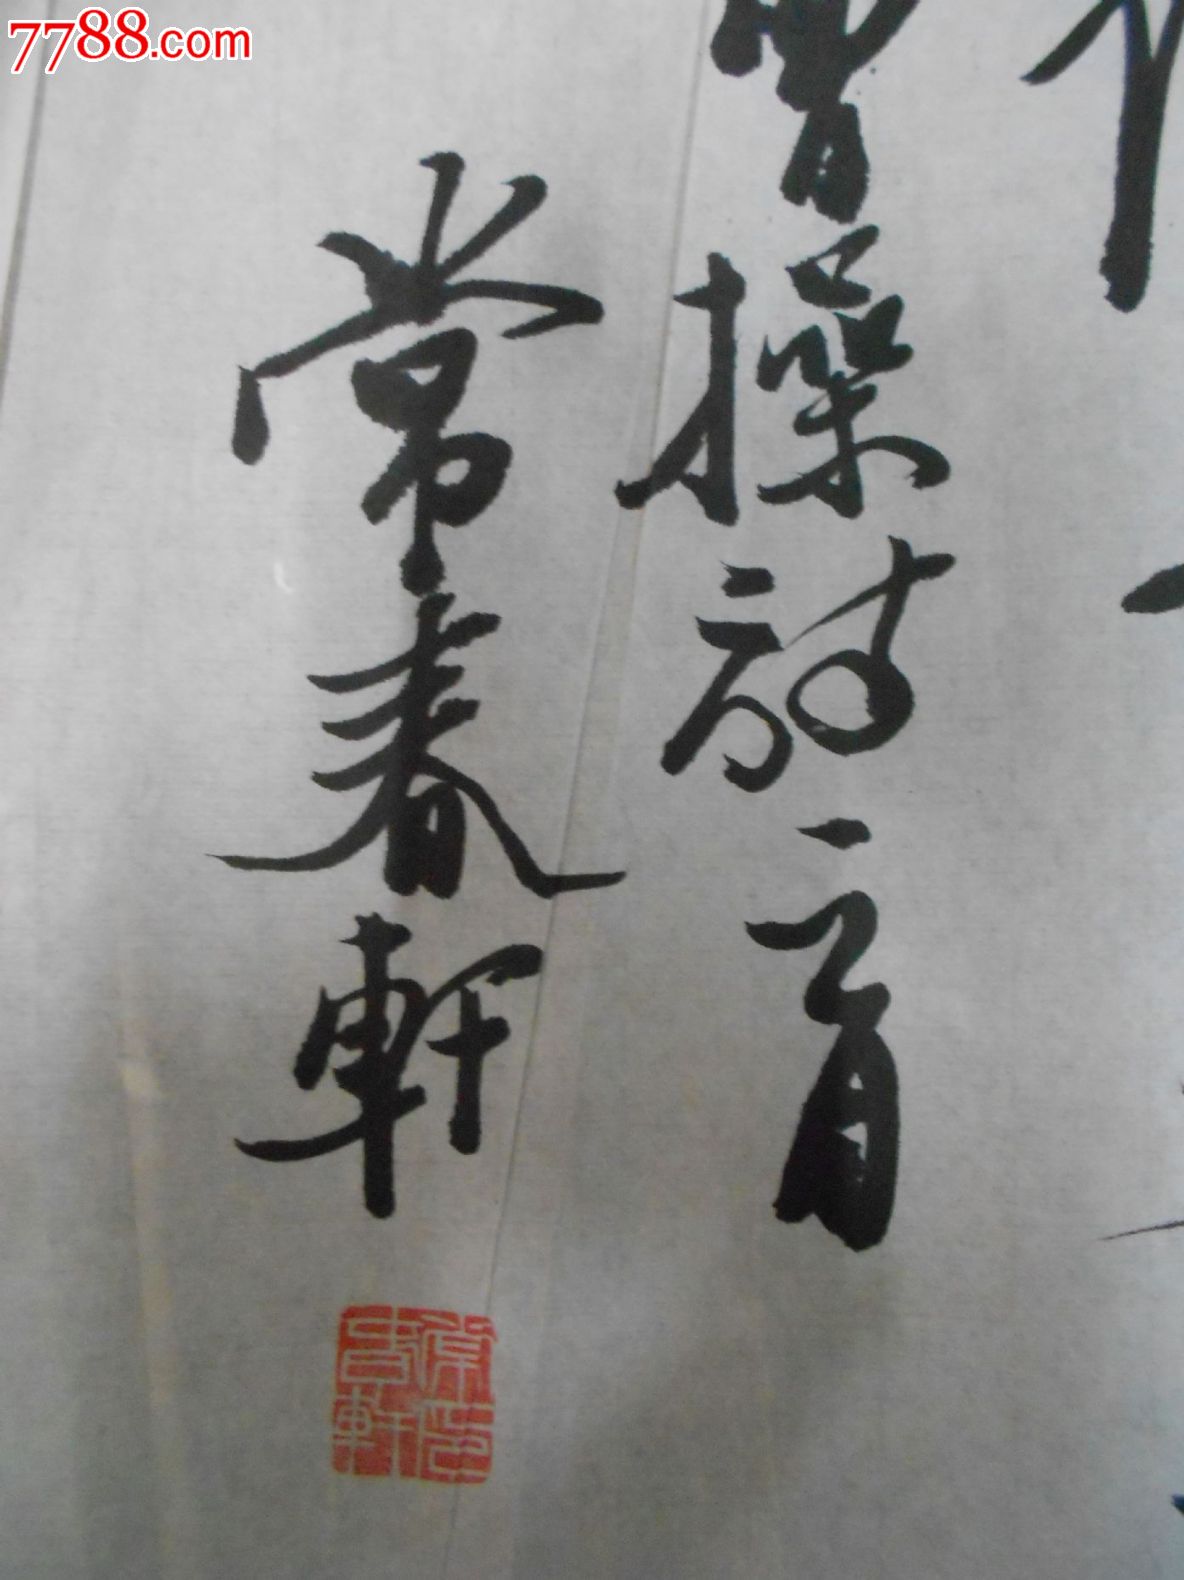 7788.com
曹操詩一首
常春軒